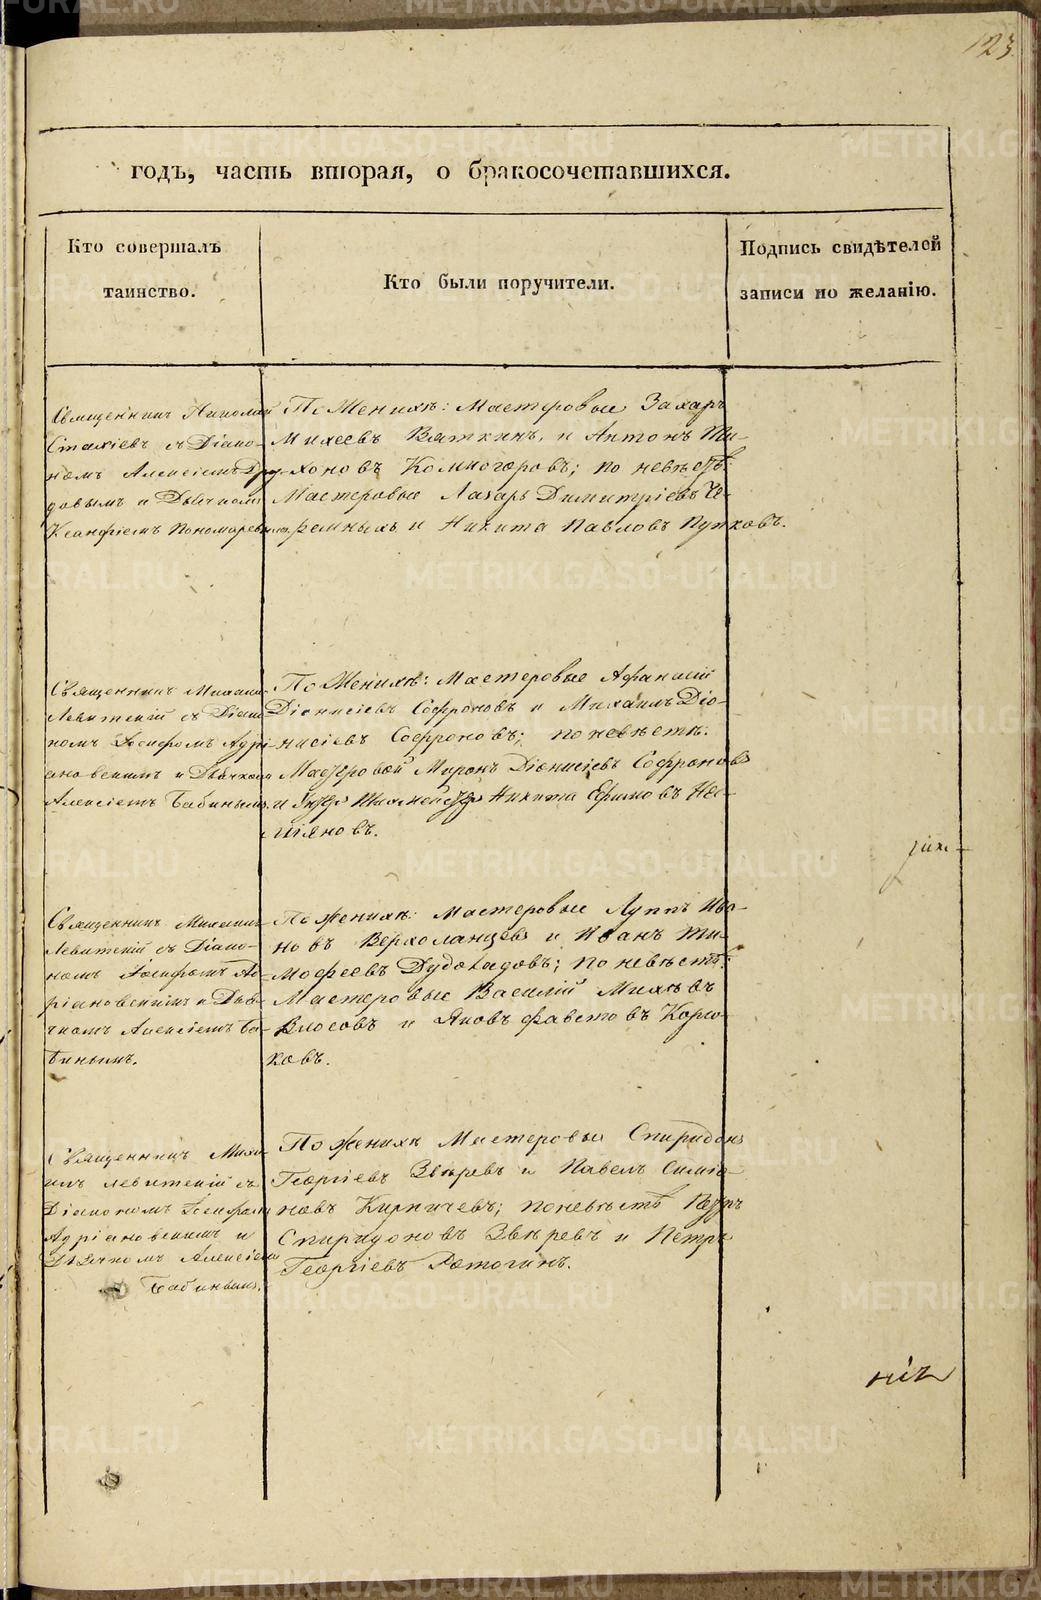 123.
годъ, часть вторая, о бракосочетавшихся.
Кто совершалъ
таинство.
Кто были поручители.
Подпись свидѣтелей
записи по желанію.
Священникъ Николай
Стахіевъ съ Діако-
номъ Алексіемъ Дру-
довымъ и Дьячкомъ
Пономаревымъ.
По Женихѣ: Мастеровые Захаръ
Михеевъ Вяткинъ, и Антонъ Ти-
хоновъ Комногоровъ; по невѣстѣ:
Мастеровые Лазарь Димитріевъ Че-
ремныхъ и Никита Павловъ Пупковъ.
Священникъ Михаилъ
Левитскій съ Діако-
номъ Іосифомъ Адрі-
ановскимъ и Дьячкомъ
Алексіемъ Бабинымъ.
По Женихѣ: Мастеровые Афанасій
Діонисіевъ Софроновъ и Михаилъ Діо-
нисіевъ Софроновъ; по невѣстѣ:
Мастеровой Миронъ Діонисіевъ Софроновъ
и Никита Ефимовъ
Священникъ Михаилъ
Левитскій съ Діако-
номъ Іосифомъ Ад-
ріановскимъ и Дья-
чкомъ Алексіемъ Ба-
бинымъ.
По женихѣ: Мастеровые Луппъ Ива-
новъ Верхоланцевъ и Иванъ Ти-
мофеевъ Дудоладовъ; по невѣстѣ:
Мастеровые Василій Михѣевъ
Власовъ и Яковъ Фавстовъ Корю-
ковъ.
Священникъ Миха-
илъ Левитскій съ
Діакономъ Іосифомъ
Адріановскимъ и
Дьячкомъ Алексіемъ
Бабинымъ.
По женихѣ Мастеровые Спиридонъ
Георгіевъ Звѣревъ и Павелъ Симіо-
новъ Кирпичевъ; по невѣстѣ Петръ
Спиридоновъ Звѣревъ и Петръ
Георгіевъ
METRIKI.GASO-URAL.RU